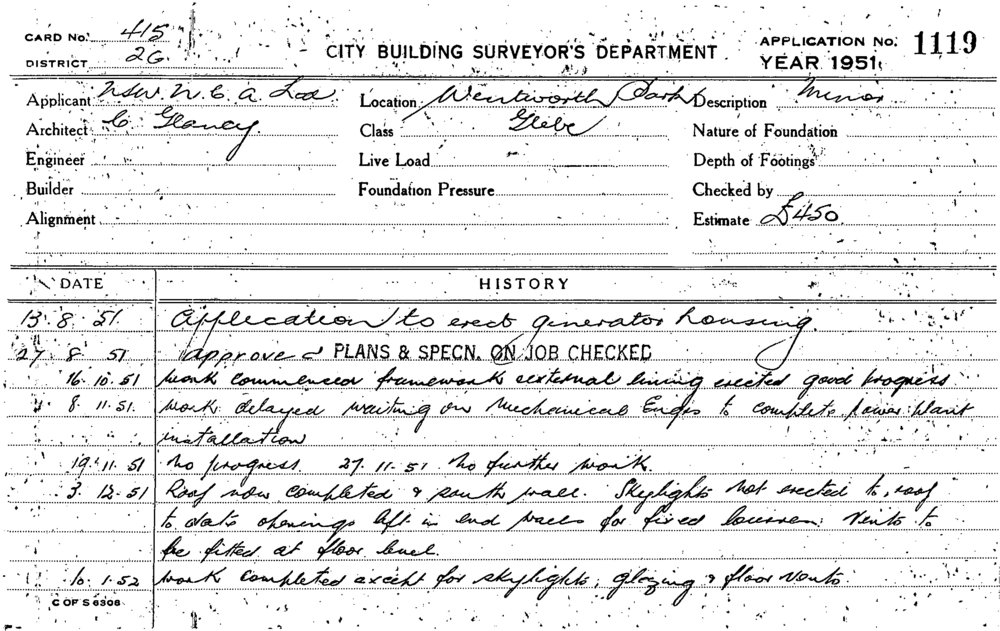 CARD No. 415
DISTRICT 2G
CITY BUILDING SURVEYOR'S DEPARTMENT
APPLICATION No. 1119
YEAR 1951
Applicant NSW N.C.A. Ltd Location Wentworth Park Description Minor
Architect C Glancy. Class Glebe Nature of Foundation
Engineer Live Load Depth of Footings
Builder Foundation Pressure Checked by
Alignment Estimate £450.
DATE HISTORY
13. 8. 51 Application to erect generator housing.
27 8 51 Approved PLANS & SPECN. ON JOB CHECKED
16. 10. 51 work commenced framework external lining erected good progress
8. 11. 51. work delayed waiting on Mechanical Engrs to complete power plant
installation
19. 11. 51 No progress. 27. 11. 51 No further work.
3. 12. 51 Roof now completed & south wall. Skylights not erected to roof
to date openings left in end walls for fixed louvres. Vents to
be fitted at floor level.
10. 1. 52 work completed except for skylights, glazing & floor vents.
C OF S 6306